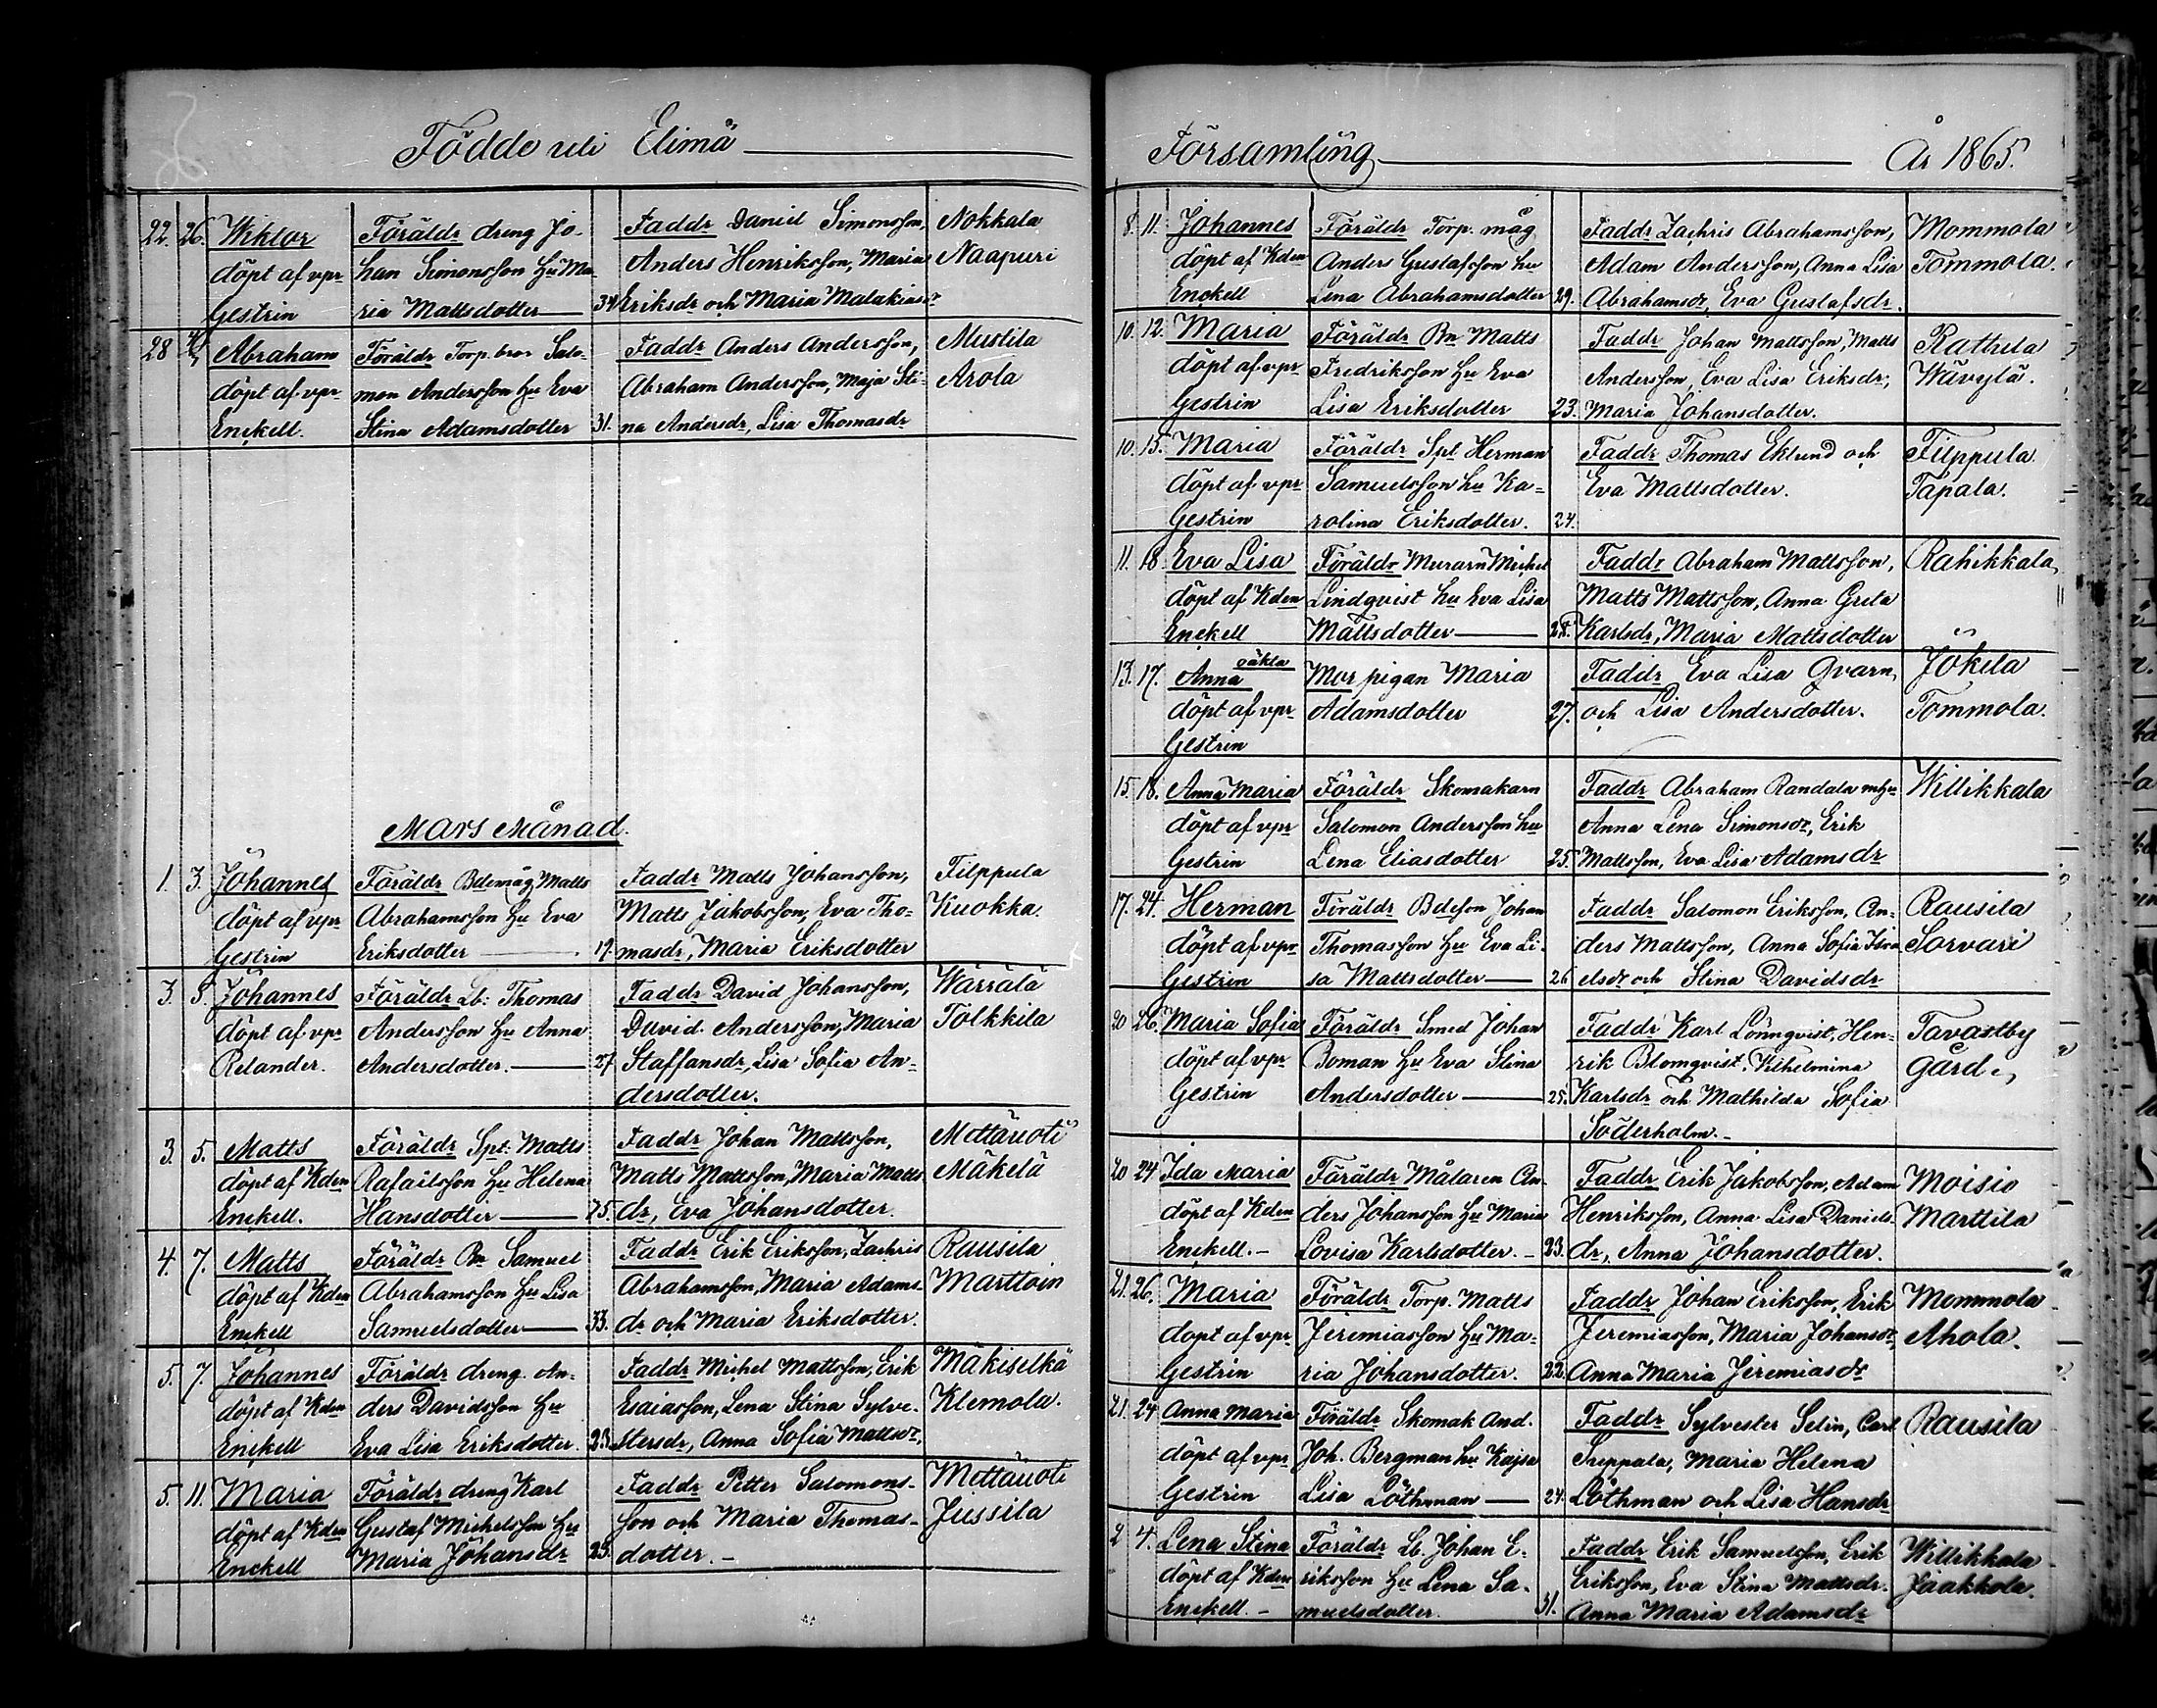 Födde uti Elimä
22. 26. Wiktor Föräldr dreng Jo- Faddr Daniel Simonsson, Nokkala
döpt af vpr han Simonsson Hu Ma Anders Henriksson, Maria Naapuri
Gestrin ria Mattsdotter 34 Eriksdr och Maria Malakiasdr
28 4/3 Abraham Föräldr Torp. bror Salo- Faddr Anders Andersson, Mustila
döpt af vpr mon Andersson Hu Eva Abraham Andersson, Maja Sti- Arola
Enckell. Stina Adamsdotter 31. na Andersdr, Lisa Thomasdr
Mars Månad.
1. 3. Johannes Föräldr Bdemåg Matts Faddr Matts Johansson, Filppula
döpt af vpr Abrahamsson Hu Eva Matts Jakobsson, Eva Tho- Kuokka.
Gestrin Eriksdotter 19. masdr, Maria Eriksdotter
3. 5. Johannes Föräldr Lb: Thomas Faddr David Johansson, Wärrälä
döpt af vpr Andersson Hu Anna David Andersson, Maria Tolkkila
Relander. Andersdotter. 27 Staffansdr, Lisa Sofia An-
dersdotter.
3. 5. Matts Föräldr Spt: Matts Faddr Johan Mattsson, Mettäuoti
döpt af Kden Rafailsson Hu Helena Matts Mattsson, Maria Matts Mäkelä
Enckell. Hansdotter 25. dr, Eva Johansdotter.
4. 7. Matts Föräldr Bn Samuel Faddr Erik Eriksson, Zachris Rausila
döpt af Kden Abrahamsson Hu Lisa Abrahamsson, Maria Adams- Marttoin
Enckell Samuelsdotter 33. dr och Maria Eriksdotter.
5. 7. Johannes Föräldr dreng An- Faddr Michel Mattsson, Erik Mäkiselkä
döpt af Kden ders Davidsson Hu Esaiasson, Lena Stina Sylve- Klemola.
Enckell Eva Lisa Eriksdotter. 23. stersdr, Anna Sofia Mattsdr,
5. 11. Maria Föräldr dreng Karl Faddr Petter Salomons- Mettäuoti
döpt af Kden Gustaf Michelsson Hu son och Maria Thomas- Jussila
Enckell Maria Johansdr 25. dotter.
Församling År 1865.
8. 11. Johannes Föräldr Torp. måg Faddr Zachris Abrahamsson, Mommola
döpt af Kden Anders Gustafsson hu Adam Andersson, Anna Lisa Tommola.
Enckell Lena Abrahamsdotter 29. Abrahamsdr, Eva Gustafsdr.
10. 12. Maria Föräldr Bn Matts Faddr Johan Mattsson, Matts Rattula
döpt af vpr Fredriksson Hu Eva Andersson, Eva Lisa Eriksdr, Wävylä.
Gestrin Lisa Eriksdotter 23. Maria Johansdotter.
10. 15. Maria Föräldr Spt Herman Faddr Thomas Eklund och Filppula.
döpt af vpr Samuelsson hu Ka- Eva Mattsdotter. Tapala.
Gestrin rolina Eriksdotter. 24.
11. 18 Eva Lisa Föräldr Murarn Michel Faddr Abraham Mattsson, Rahikkala,
döpt af Kden Lindqvist hu Eva Lisa Matts Mattsson, Anna Greta
Enckell Mattsdotter 28. Karlsdr, Maria Mattsdotter
13. 17. Anna oäkta Mor pigan Maria Faddr Eva Lisa Qvarn, Jokela
döpt af vpr Adamsdotter 27. och Lisa Andersdotter. Tommola.
Gestrin
15. 18. Anna Maria Föräldr Skomakarn Faddr Abraham Randala m hu Willikkala
döpt af vpr Salomon Andersson hu Anna Lena Simonsdr, Erik
Gestrin Lena Eliasdotter 25. Mattsson, Eva Lisa Adamsdr
17. 24. Herman Föräldr Bdeson Johan Faddr Salomon Eriksson, An- Rausila
döpt af vpr Thomasson Hu Eva Li- ders Mattsson, Anna Sofia Isra Sorvari
Gestrin sa Mattsdotter 26 elsdr och Stina Davidsdr
20 26. Maria Sofia Föräldr Smed Johan Faddr Karl Lönnqvist, Hen- Tavastby
döpt af vpr Boman Hu Eva Stina rik Blomqvist, Vilhelmina Gård.
Gestrin Andersdotter 25. Karlsdr och Mathilda Sofia
Söderholm.
20 24 Ida Maria Föräldr Målaren An- Faddr Erik Jakobsson, Adam Moisio
döpt af Kden ders Johansson Hu Maria Henriksson, Anna Lisa Daniels- Marttila
Enckell. Lovisa Karlsdotter. 23. dr, Anna Johansdotter.
21. 26. Maria Föräldr Torp. Matts Faddr Johan Eriksson, Erik Mommola
döpt af vpr Jeremiasson Hu Ma- Jeremiasson, Maria Johansdr, Ahola.
Gestrin ria Johansdotter. 22. Anna Maria Jeremiasdr
21. 24 Anna Maria Föräldr Skomak And. Faddr Sylvester Selin, Carl Rausila
döpt af vpr Joh. Bergman hu Kajsa Seppala, Maria Helena
Gestrin Lisa Löthman 24. Löthman och Lisa Hansdr
2 4. Lena Stina Föräldr Lb. Johan E- Faddr Erik Samuelsson, Erik Willikkala
döpt af Kden riksson Hu Lena Sa- Eriksson, Eva Stina Mattsdr. Jaakkola.
Enckell. muelsdotter. 31. Anna Maria Adamsdr